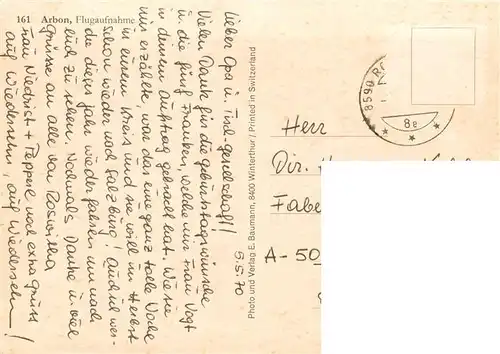 161 Arbon, Flugaufnahme
5.5.70
Lieber Opa u. Tischgesellschaft!
Vielen Dank für die Geburtstagswünsche
u. die fünf Franken, welche mir Frau Vogt
in deinem Auftrag gebracht hat. Wie sie
mir erzählte, war das eine ganz tolle Woche
in eurem Kreis und sie will im Herbst
schon wieder nach Salzburg! Auch wer-
de dieses Jahr wieder fahren um euch
zu sehen. Nochmals Danke u. viele
Grüsse an alle von Roswitha
Frau Niedrist + Pepperl noch extra Gruss
auf Wiedersehn, auf Wiedersehn!
Photo und Verlag E. Baumann, 8400 Winterthur / Printed in Switzerland
8590
8e
Herr
Dir.
Fabe
A-50